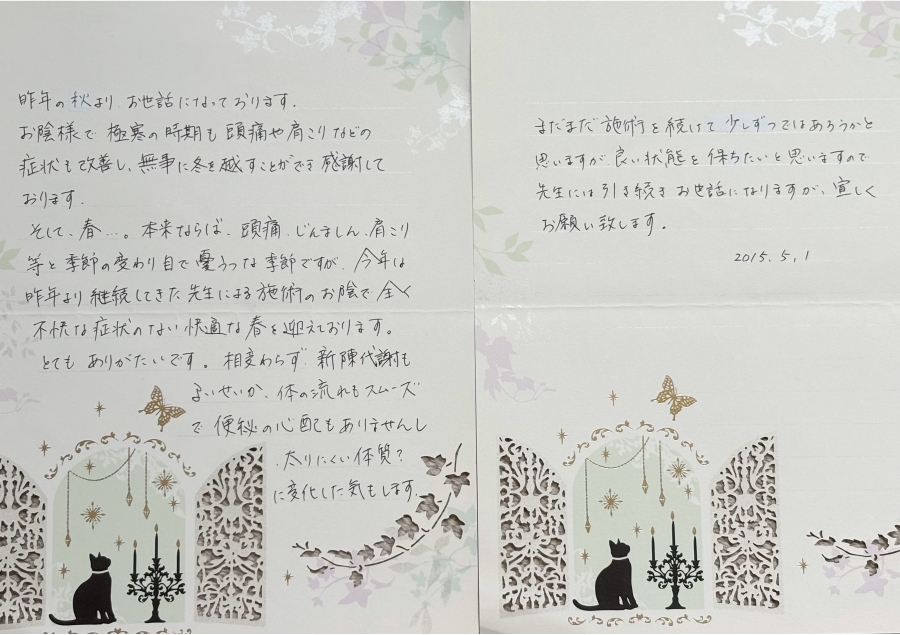 昨年の秋より、お世話になっております。
お陰様で極寒の時期も頭痛や肩こりなどの
症状も改善し、無事に冬を越すことができ感謝して
おります。
そして、春…。本来ならば、頭痛、じんましん、肩こり
等と季節の変わり目で憂うつな季節ですが、今年は
昨年より継続してきた先生による施術のお陰で全く
不快な症状のない快適な春を迎えております。
とてもありがたいです。相変わらず、新陳代謝も
よいせいか、体の流れもスムーズ
で便秘の心配もありませんし
、太りにくい体質?
に変化した気もします。
まだまだ施術を続けて少しずつではあろうかと
思いますが良い状態を保ちたいと思いますので
先生には引き続きお世話になりますが、宜しく
お願い致します。
2015.5.1